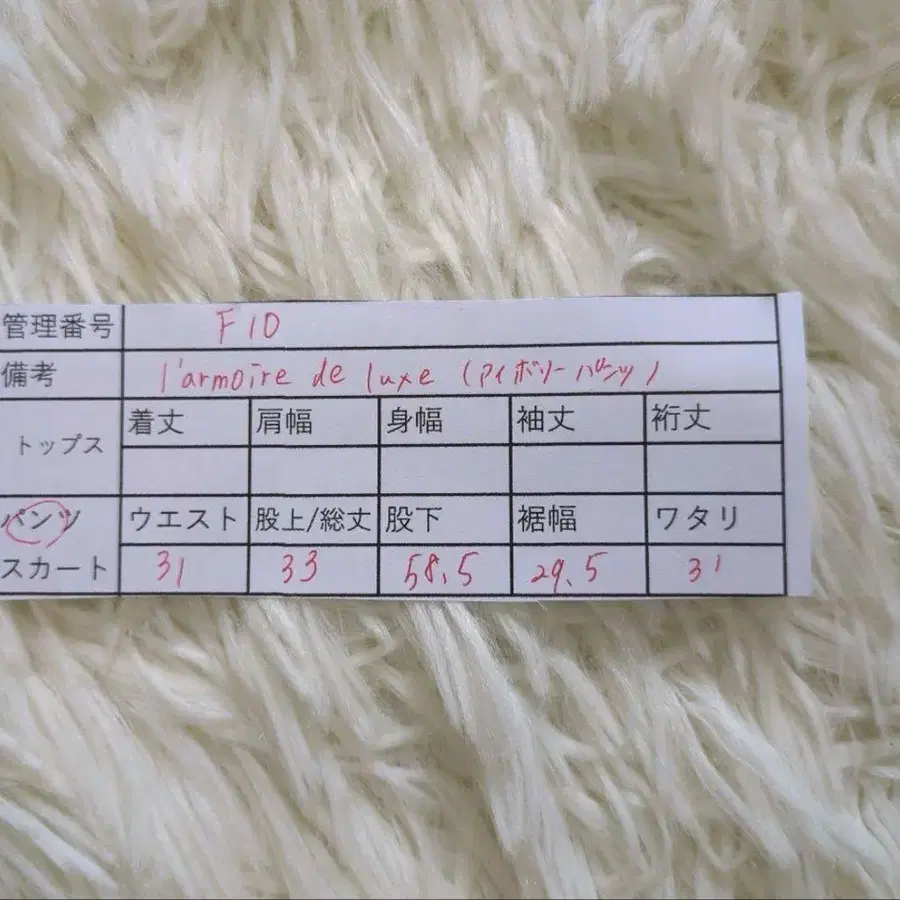 管理番号 F10
備考 l'armoire de luxe (アイボリーパンツ)
トップス 着丈 肩幅 身幅 袖丈 裄丈
パンツ ウエスト 股上/総丈 股下 裾幅 ワタリ
スカート 31 33 58.5 29.5 31